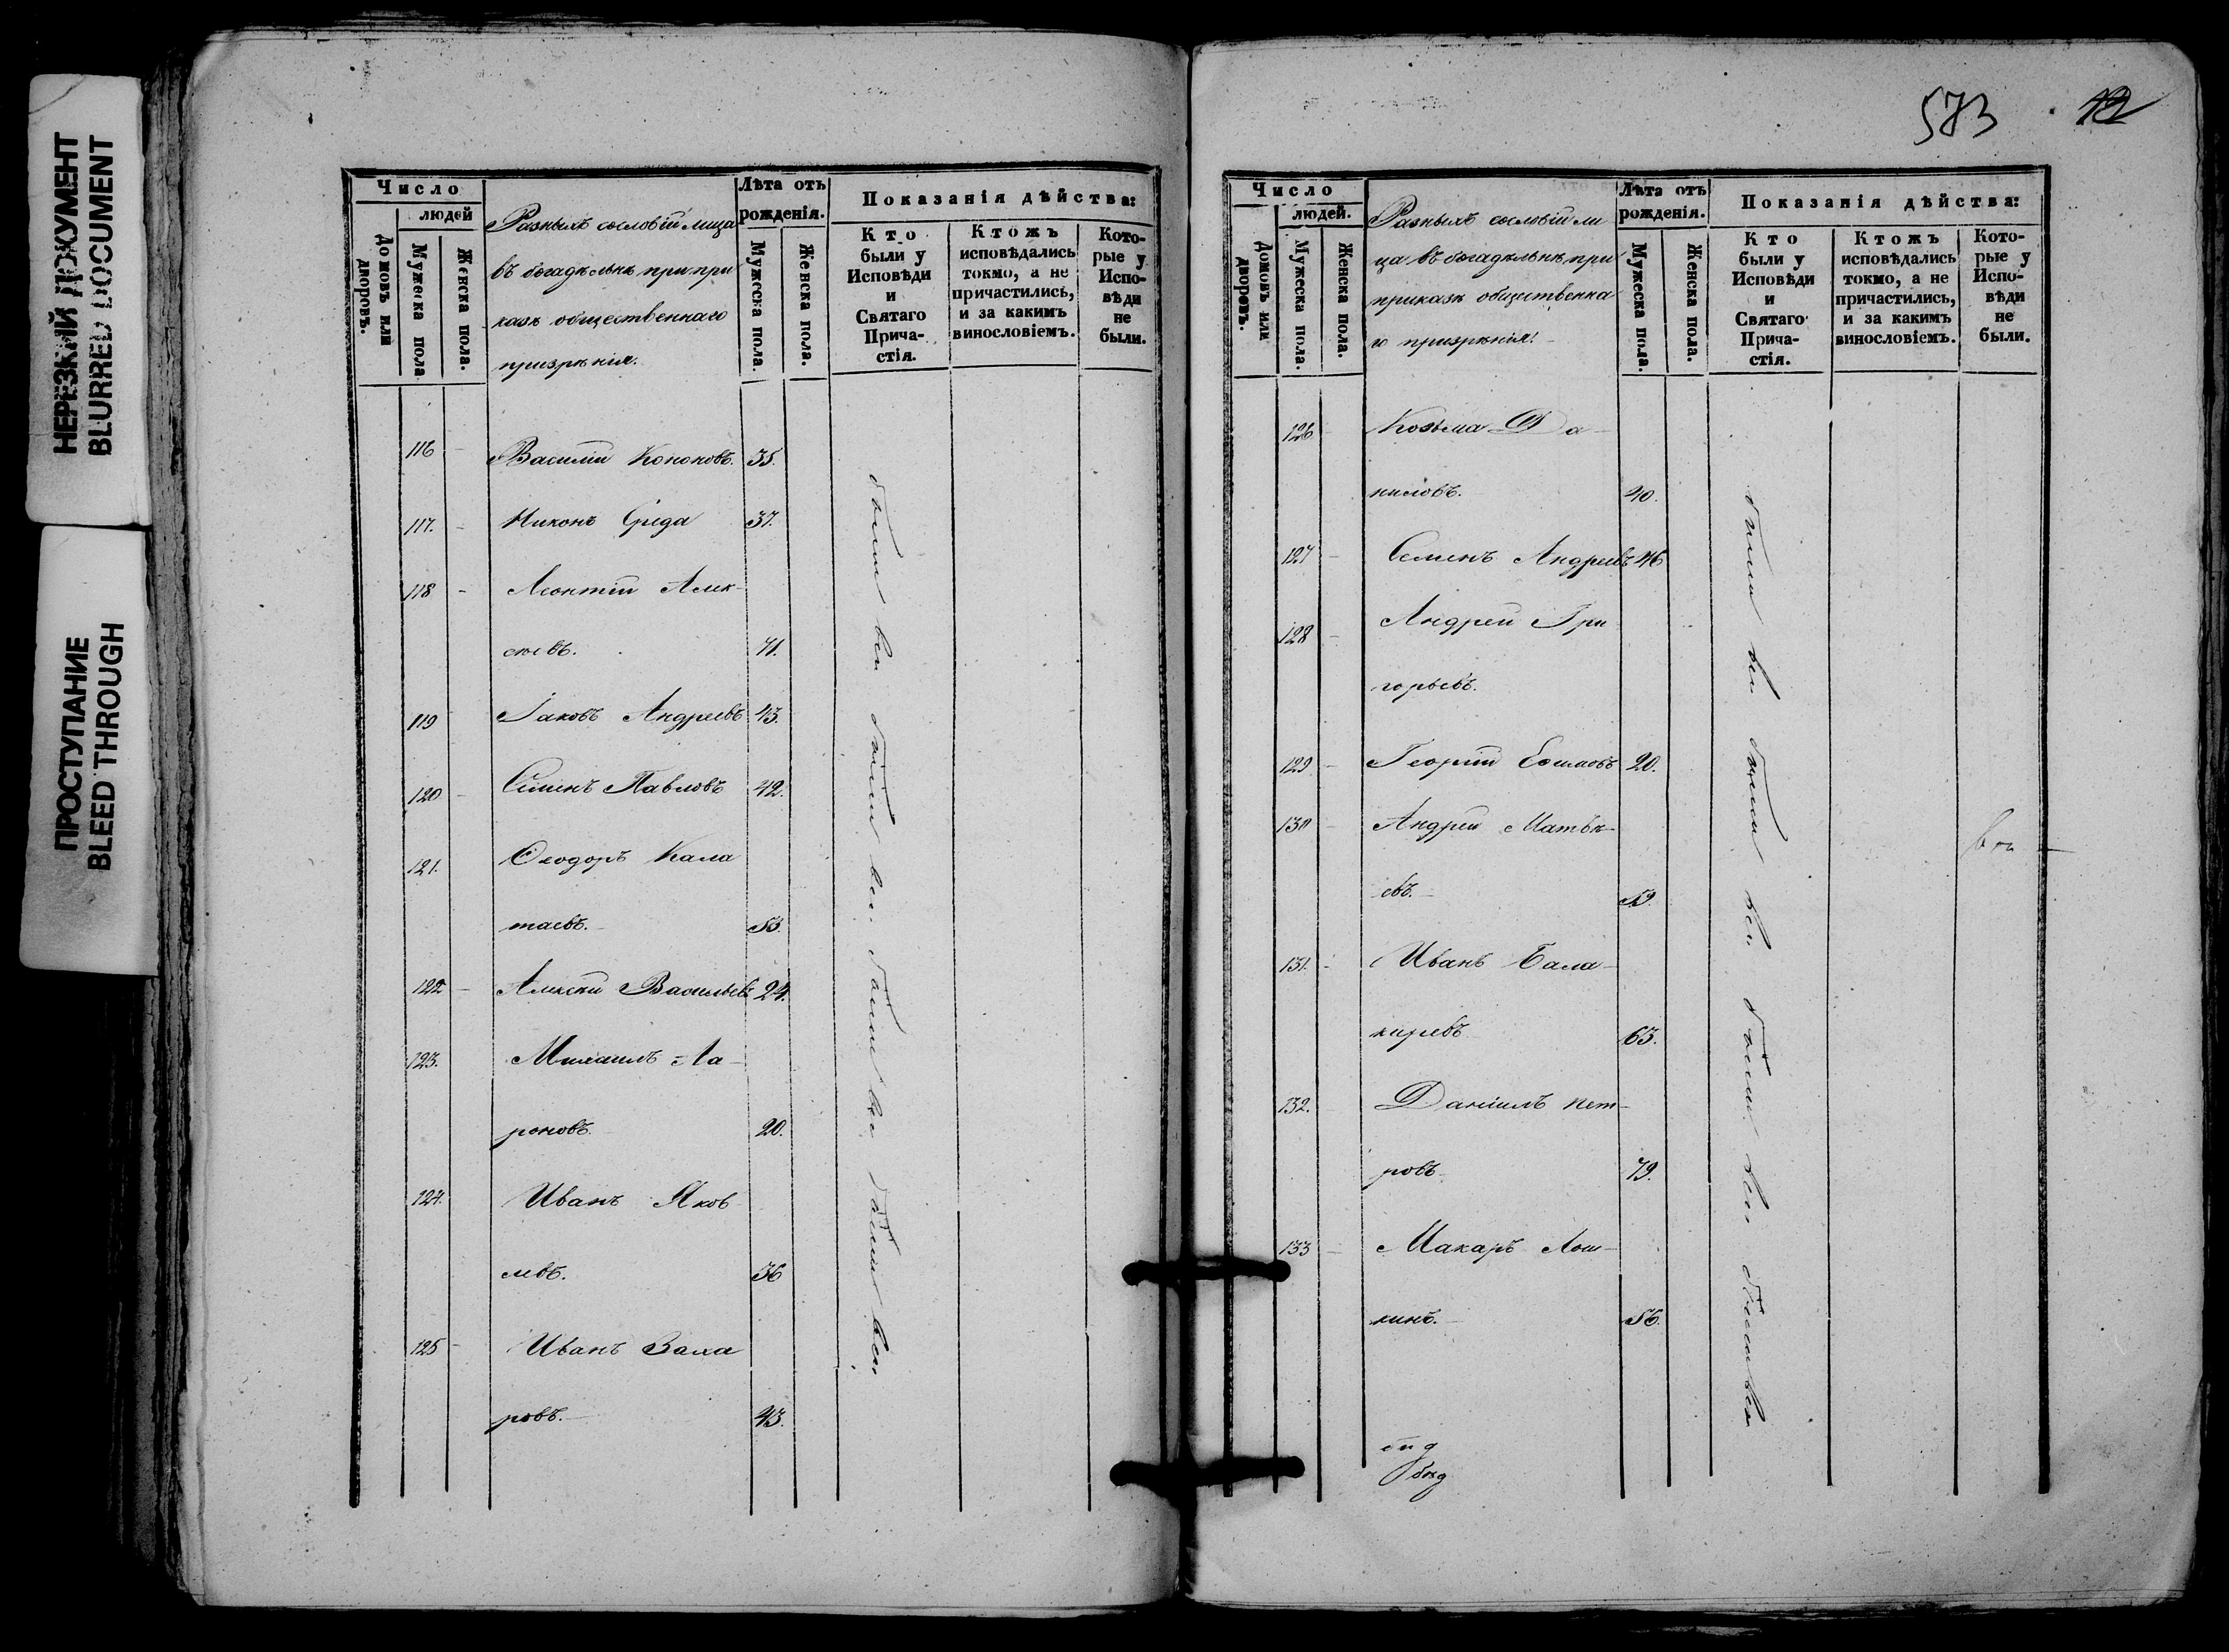 НЕРЕЗКИЙ ДОКУМЕНТ
BLURRED DOCUMENT
ПРОСТУПАНИЕ
BLEED THROUGH
Число
людей
Домовъ или дворовъ.
Мужеска пола
Женска пола.
Разныхъ сословій лица
въ богадѣльнѣ при при
казѣ общественнаго
призрѣнія.
Лѣта отъ
рожденія.
Мужеска пола.
Женска пола.
Показанія дѣйства:
Кто
были у
Исповѣди
и
Святаго
Прича-
стія.
Ктожъ
исповѣдались
токмо, а не
причастились,
и за какимъ
винословіемъ.
Кото-
рые у
Испо-
вѣди
не
были.
116 Василій Кононовъ. 35.
117. Никонъ Среда 37.
118 Леонтій Алек-
сѣевъ. 71.
119 Іаковъ Андреевъ 43.
120 Семенъ Павловъ 42.
121. Ѳеодоръ Кала
таевъ. 53.
122 Алексѣй Васильевъ 24.
123. Михаилъ Ла-
роновъ. 20.
124. Иванъ Яков
левъ. 36
125 Иванъ Заха
ровъ. 43.
были вси были вси были вси были вси
573 12
Число
людей.
Домовъ или дворовъ.
Мужеска пола.
Женска пола.
Разныхъ сословій ли
ца въ богадѣльнѣ при
приказѣ общественна
го призрѣнія.
Лѣта отъ
рожденія.
Мужеска пола.
Женска пола.
Показанія дѣйства:
Кто
были у
Исповѣди
и
Святаго
Прича-
стія.
Ктожъ
исповѣдались
токмо, а не
причастились,
и за какимъ
винословіемъ.
Кото-
рые у
Испо-
вѣди
не
были.
126 Козьма Да-
ниловъ. 40.
127 Семенъ Андреевъ 46
128 Андрей Гри
горьевъ.
129 Георгій 20.
130 Андрей Матвѣ-
евъ. 59.
131. Иванъ Бала-
киревъ 63.
132. Даніилъ Пет-
ровъ 79.
133 Макаръ Лош-
кинъ. 56.
были вси были вси были вси были вси